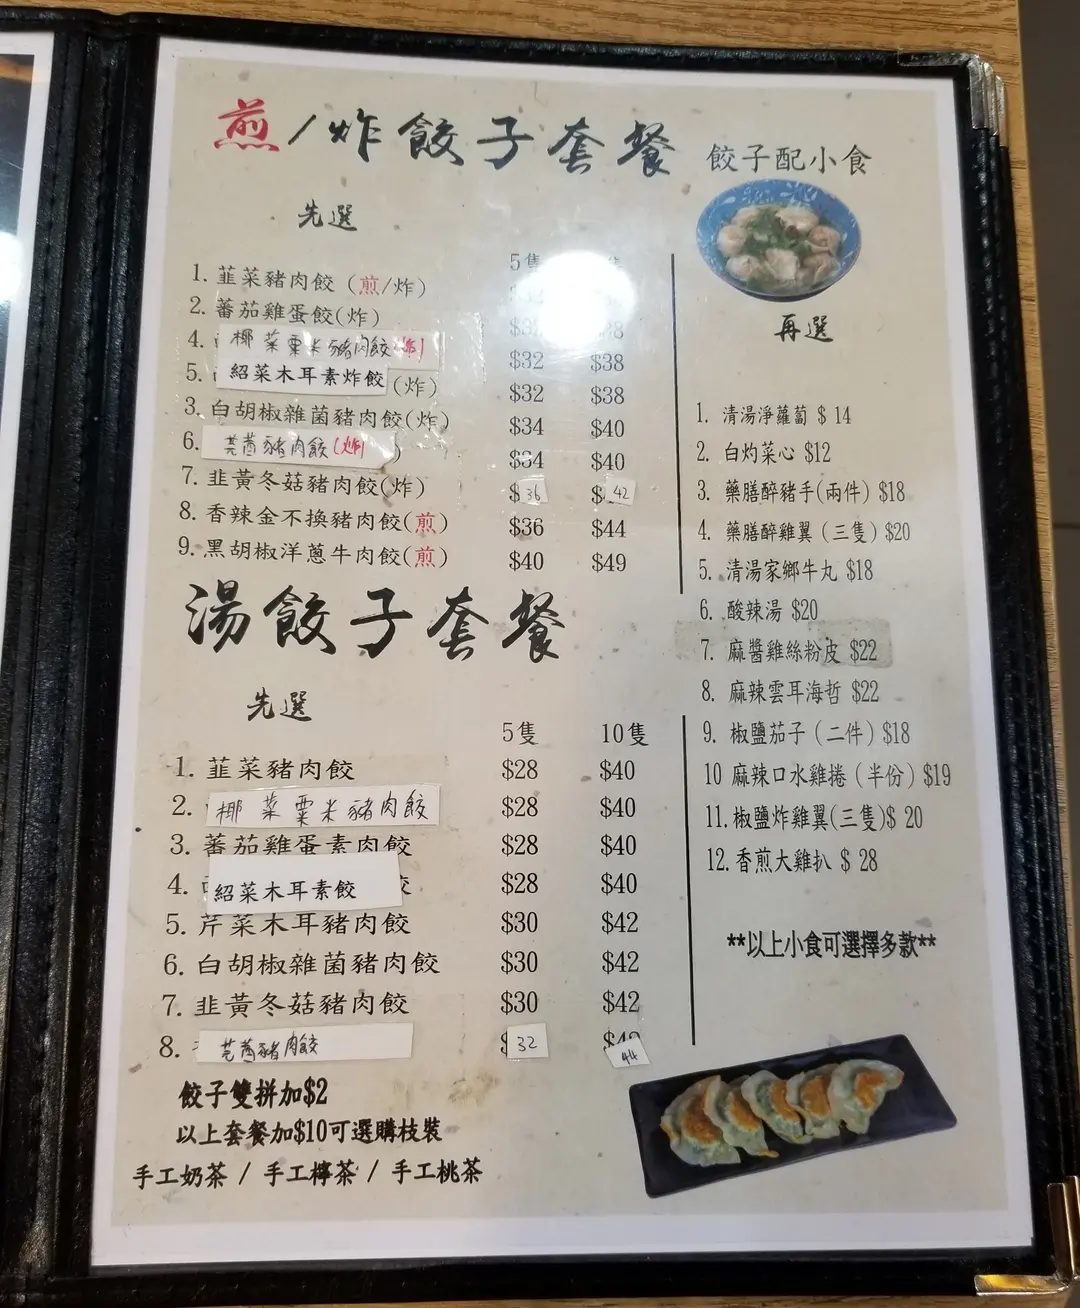 煎/炸餃子套餐 餃子配小食
先選
5隻
1. 韮菜豬肉餃 (煎/炸)
2. 蕃茄雞蛋餃(炸)
4. 椰菜粟米豬肉餃(炸) $32 $38
5. 紹菜木耳素炸餃 (炸) $32 $38
3. 白胡椒雜菌豬肉餃(炸) $34 $40
6. 芫茜豬肉餃(炸) $34 $40
7. 韭黃冬菇豬肉餃(炸) $36 $42
8. 香辣金不換豬肉餃(煎) $36 $44
9. 黑胡椒洋蔥牛肉餃(煎) $40 $49
湯餃子套餐
先選
5隻 10隻
1. 韮菜豬肉餃 $28 $40
2. 椰菜粟米豬肉餃 $28 $40
3. 蕃茄雞蛋素肉餃 $28 $40
4. 紹菜木耳素餃 $28 $40
5. 芹菜木耳豬肉餃 $30 $42
6. 白胡椒雜菌豬肉餃 $30 $42
7. 韭黃冬菇豬肉餃 $30 $42
8. 芫茜豬肉餃 $32 44
餃子雙拼加$2
以上套餐加$10可選購枝裝
手工奶茶 / 手工檸茶 / 手工桃茶
再選
1. 清湯淨蘿蔔 $ 14
2. 白灼菜心 $12
3. 藥膳醉豬手(兩件) $18
4. 藥膳醉雞翼 (三隻) $20
5. 清湯家鄉牛丸 $18
6. 酸辣湯 $20
7. 麻醬雞絲粉皮 $22
8. 麻辣雲耳海哲 $22
9. 椒鹽茄子 (二件) $18
10 麻辣口水雞捲 (半份) $19
11. 椒鹽炸雞翼(三隻)$ 20
12. 香煎大雞扒 $ 28
**以上小食可選擇多款**